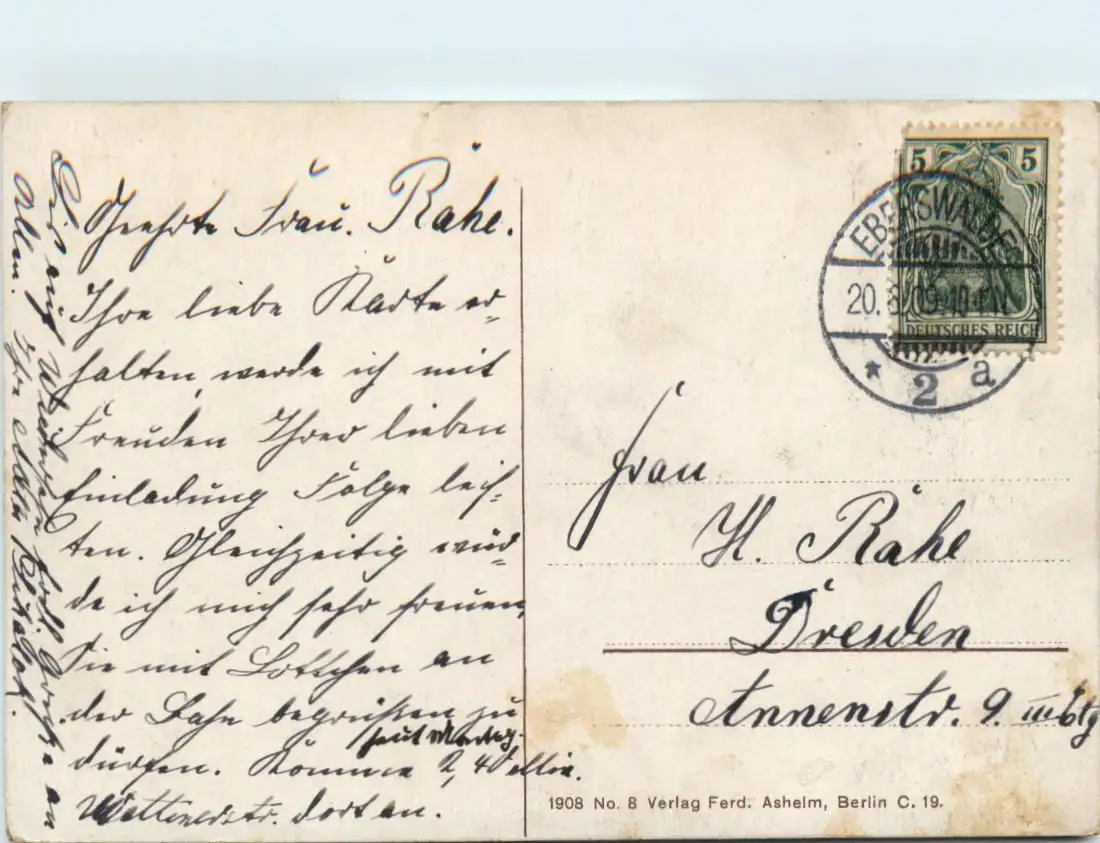 Geehrte Frau. Rahe.
Ihre liebe Karte er-
halten, werde ich mit
Freuden Ihrer lieben
Einladung Folge leis-
ten. Gleichzeitig wür-
de ich mich sehr freuen,
Sie mit Lottchen an
der Bahn begrüßen zu
dürfen. Komme 2,40
Wettinerstr. dort an.
Bis auf Wiedersehn herzl. Grüße an
Allen. Ihre
5 5
DEUTSCHES REICH
EBERSWALDE
20.8.09.
* 2 a
Frau
H. Rahe
Dresden
Annenstr. 9. III
1908 No. 8 Verlag Ferd. Ashelm, Berlin C. 19.